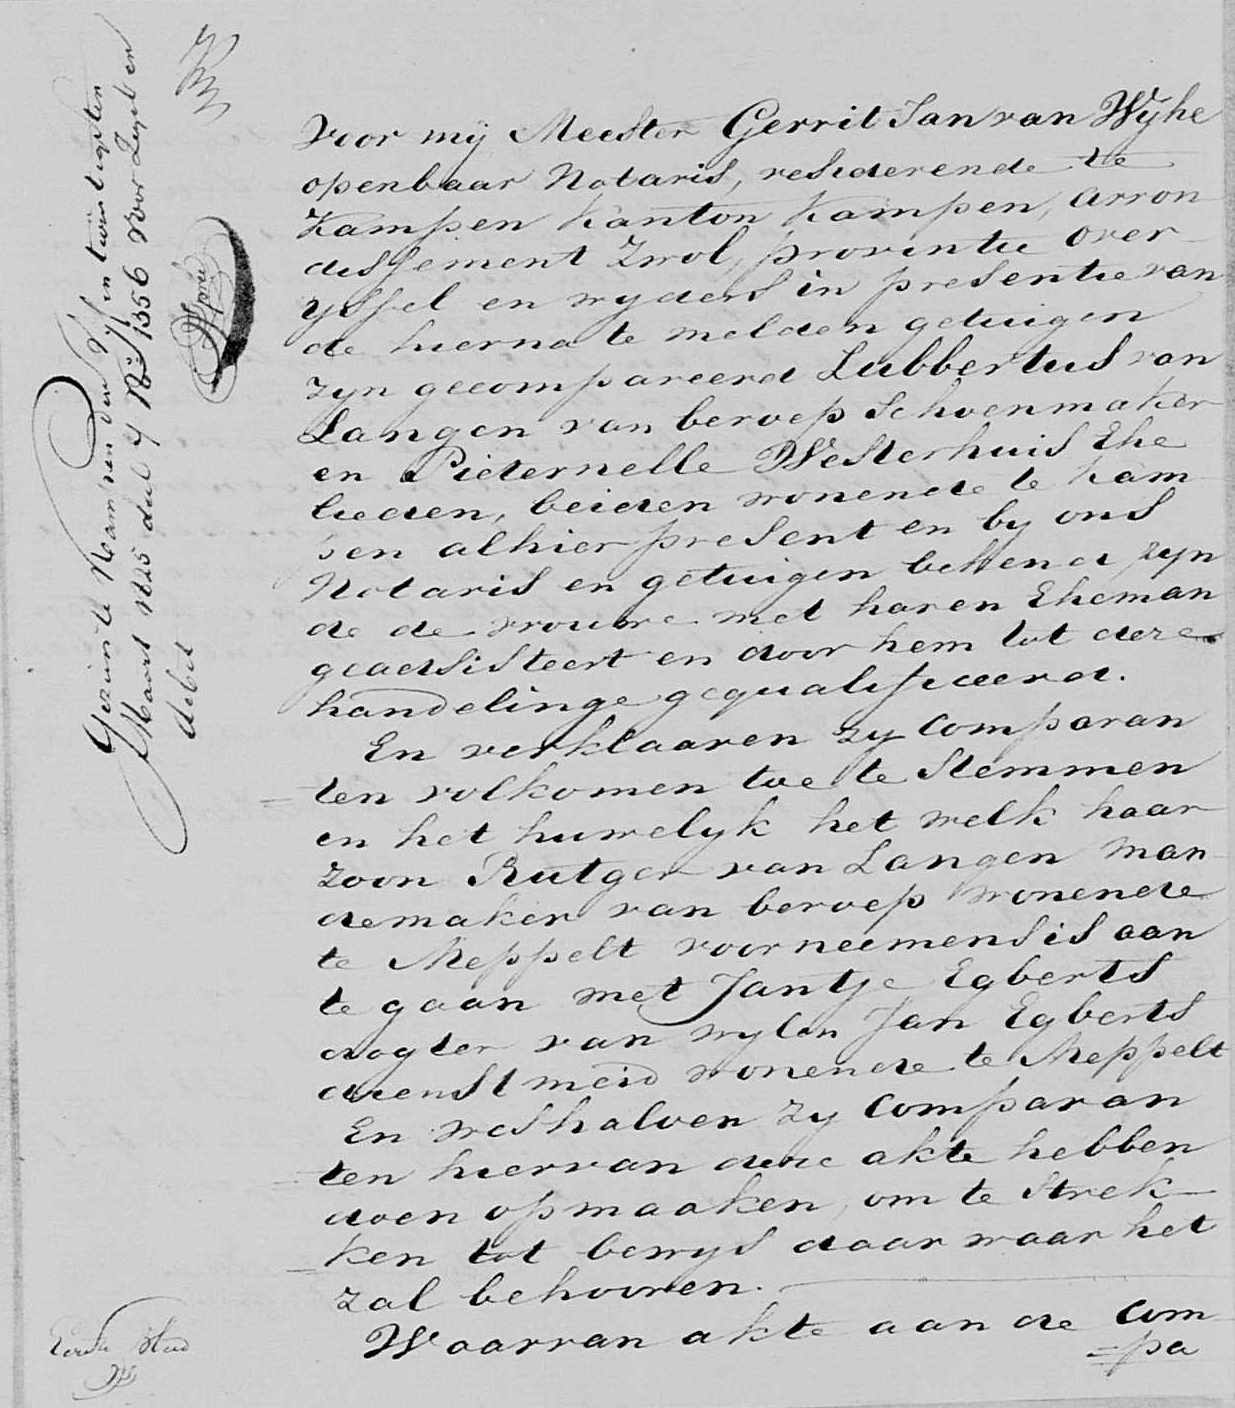 Voor mij Meester Gerrit Jan van Wijhe
openbaar Notaris, residerende te
Kampen kanton Kampen, arron
dissement Zwol, provintie Over
yssel en wyders in presentie van
de hierna te melden getuigen
zyn gecompareerd Lubbertus van
Langen van beroep schoenmaker
en Pieternelle Westerhuis Ehe
lieden, beiden wonende te Kam
pen alhier present en by ons
Notaris en getuigen bekend zyn
de de vrouwe met haren Eheman
geadsisteert en door hem tot deze
handelinge gequalificeerd.
En verklaaren zy Comparan
ten volkomen toe te stemmen
en het huwelyk het welk haar
zoon Rutger van Langen man
demaker van beroep wonende
te Meppelt voorneemens is aan
te gaan met Jantje Egberts
dogter van wylen Jan Egberts
dienstmeid wonende te Meppelt
En weshalven zy Comparan
ten hiervan deze akte hebben
doen opmaaken, om te strek
ken tot bewys daar waar het
zal behooren.
Waarvan akte aan de Com
=pa
Gezien te Kampen den vyf en twintigsten
Maart 1825 deel 4 No 1356 voor Zegel en
debet
Eerste blad